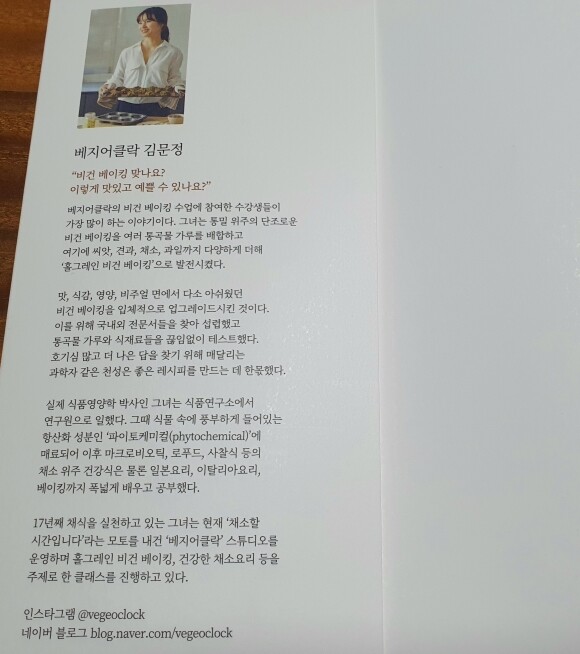 베지어클락 김문정
“비건 베이킹 맞나요?
이렇게 맛있고 예쁠 수 있나요?”
베지어클락의 비건 베이킹 수업에 참여한 수강생들이
가장 많이 하는 이야기이다. 그녀는 통밀 위주의 단조로운
비건 베이킹을 여러 통곡물 가루를 배합하고
여기에 씨앗, 견과, 채소, 과일까지 다양하게 더해
‘홀그레인 비건 베이킹’으로 발전시켰다.
맛, 식감, 영양, 비주얼 면에서 다소 아쉬웠던
비건 베이킹을 입체적으로 업그레이드시킨 것이다.
이를 위해 국내외 전문서들을 찾아 섭렵했고
통곡물 가루와 식재료들을 끊임없이 테스트했다.
호기심 많고 더 나은 답을 찾기 위해 매달리는
과학자 같은 천성은 좋은 레시피를 만드는 데 한몫했다.
실제 식품영양학 박사인 그녀는 식품연구소에서
연구원으로 일했다. 그때 식물 속에 풍부하게 들어있는
항산화 성분인 ‘파이토케미컬(phytochemical)’에
매료되어 이후 마크로비오틱, 로푸드, 사찰식 등의
채소 위주 건강식은 물론 일본요리, 이탈리아요리,
베이킹까지 폭넓게 배우고 공부했다.
17년째 채식을 실천하고 있는 그녀는 현재 ‘채소할
시간입니다’라는 모토를 내건 ‘베지어클락’ 스튜디오를
운영하며 홀그레인 비건 베이킹, 건강한 채소요리 등을
주제로 한 클래스를 진행하고 있다.
인스타그램 @vegeoclock
네이버 블로그 blog.naver.com/vegeoclock